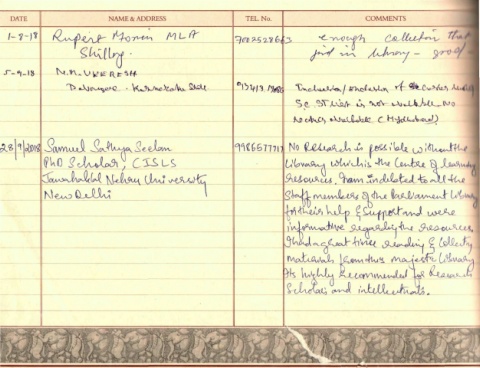 DATE NAME & ADDRESS TEL. No. COMMENTS
1-8-18 Rupert Momin MLA enough collection that
Shillong. find in library - good -
5-9-18 N.M.
Davangere - Karnataka State Inclusion/exclusion of
SC ST list is not available, no
28/9/2018 Samuel Sathya Seelan No Research is possible without the
PhD Scholar, CISLS Library which is the Centre of learning
Jawaharlal Nehru University resources. I am indebted to all the
New Delhi Staff members of the Parliament Library
for their help & support and were
informative regarding the resources.
I had a great time reading & collecting
materials from this majestic Library
Its highly recommended for Research
Scholars and intellectuals.